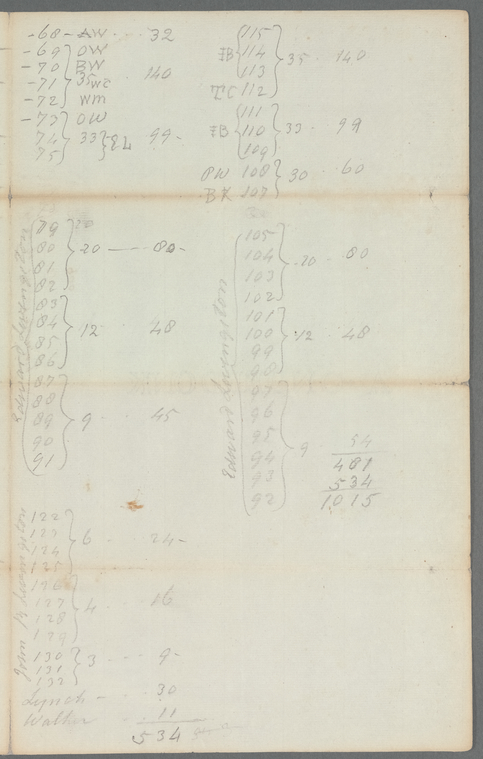 -68- AW 32
-69 OW
-70 BW
-71 35 WC 140
-72 WM
-73 OW
74 33 EL 99-
75
79 20
80 20 80-
81
82
83
84 12 48
85
86
87
88
89 9 45
90
91
Edward Livingston
122
123 6 24-
124
125
126
127 4 16
128
129
130 3 9-
131
132
John R Livingston
Lynch - 30
Walker 11
534
115
114 35 140
113
TC 112
111
110 33 99
109
PW 108 30 60
BK 107
105
104 20 80
103
102
101
100 12 48
99
98
97
96
95
94 9 54
93
92
Edward Livingston
481
534
1015